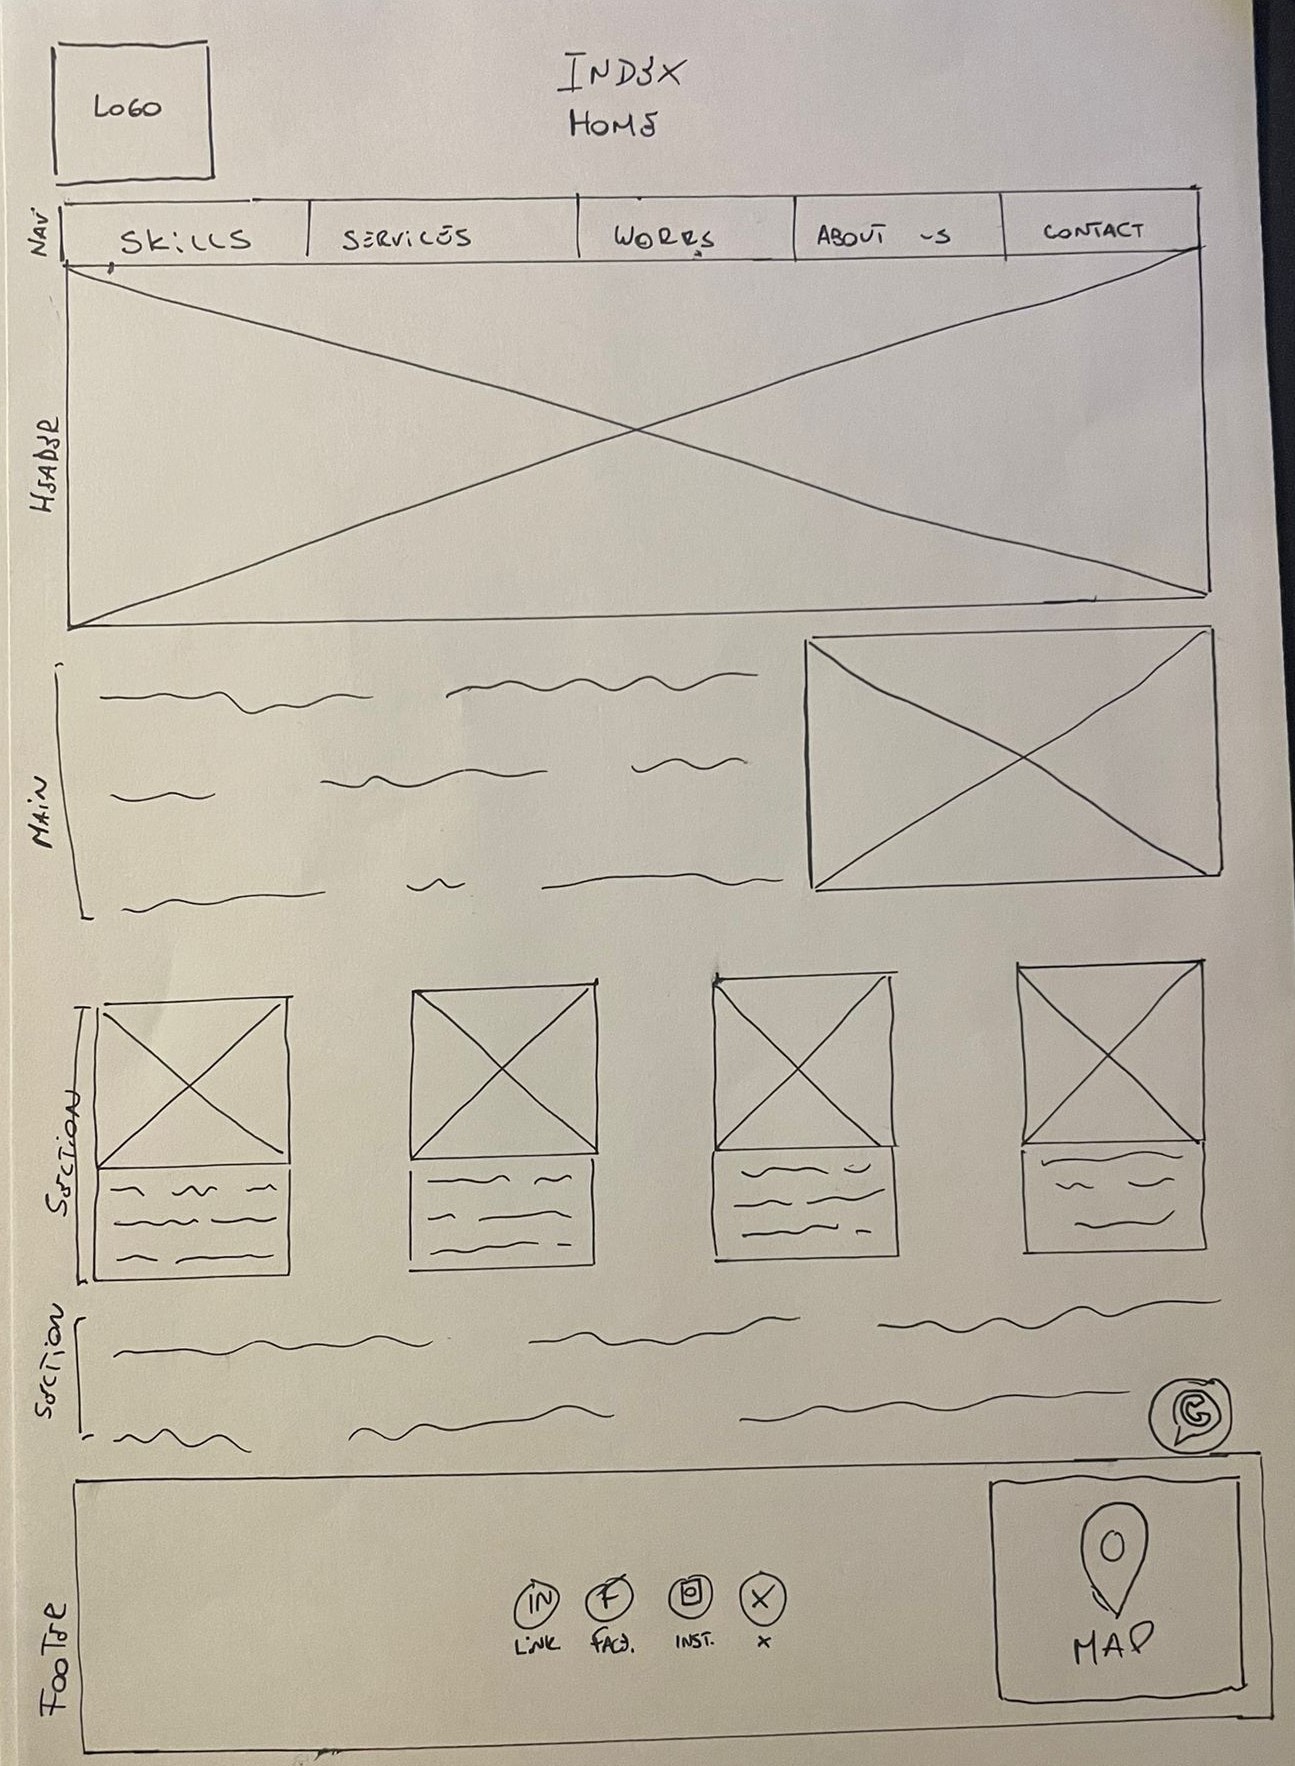 LOGO
INDEX
HOME
NAV
SKILLS
SERVICES
WORKS
ABOUT US
CONTACT
HEADER
MAIN
SECTION
SECTION
FOOTER
IN
F
X
LINK
FACE.
INST.
X
MAP